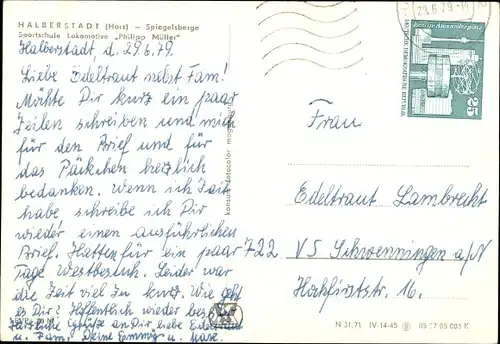 HALBERSTADT (Harz) — Spiegelsberge
Sportschule Lokomotive „Philipp Müller"
Halberstadt, d. 29.6.79.
Liebe Edeltraut nebst Fam!
Möchte Dir kurz ein paar
Zeilen schreiben und mich
für den Brief und für
das Päckchen herzlich
bedanken. Wenn ich Zeit
habe, schreibe ich Dir
wieder einen ausführlichen
Brief. Hatten für ein paar
Tage Westbesuch. Leider war
die Zeit viel zu kurz. Wie geht
es Dir? Hoffentlich wieder besser
Herzliche Grüße an Dir liebe Edeltraut
u. Fam. Deine Emmy u.
konsum fotocolor magdeburg
29.6.79
Berlin-Alexanderplatz
DEUTSCHE DEMOKRATISCHE REPUBLIK
25
Frau
Edeltraut Lambrecht
722 VS Schwenningen a/N
Hochfirststr. 16.
N 31/71 IV-14-45 05 07 05 000 K